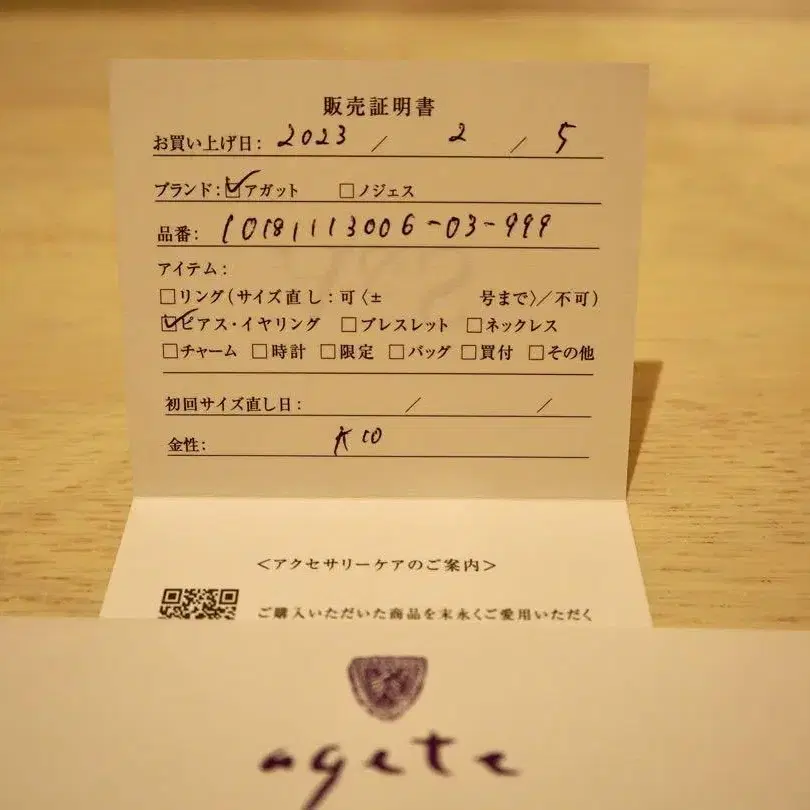 販売証明書
お買い上げ日: 2023 / 2 / 5
ブランド: ☑アガット □ノジェス
品番: 10181113006-03-999
アイテム:
□リング(サイズ直し:可〈± 号まで〉/不可)
☑ピアス・イヤリング □ブレスレット □ネックレス
□チャーム □時計 □限定 □バッグ □買付 □その他
初回サイズ直し日: / /
金性: K10
<アクセサリーケアのご案内>
ご購入いただいた商品を末永くご愛用いただく
agete